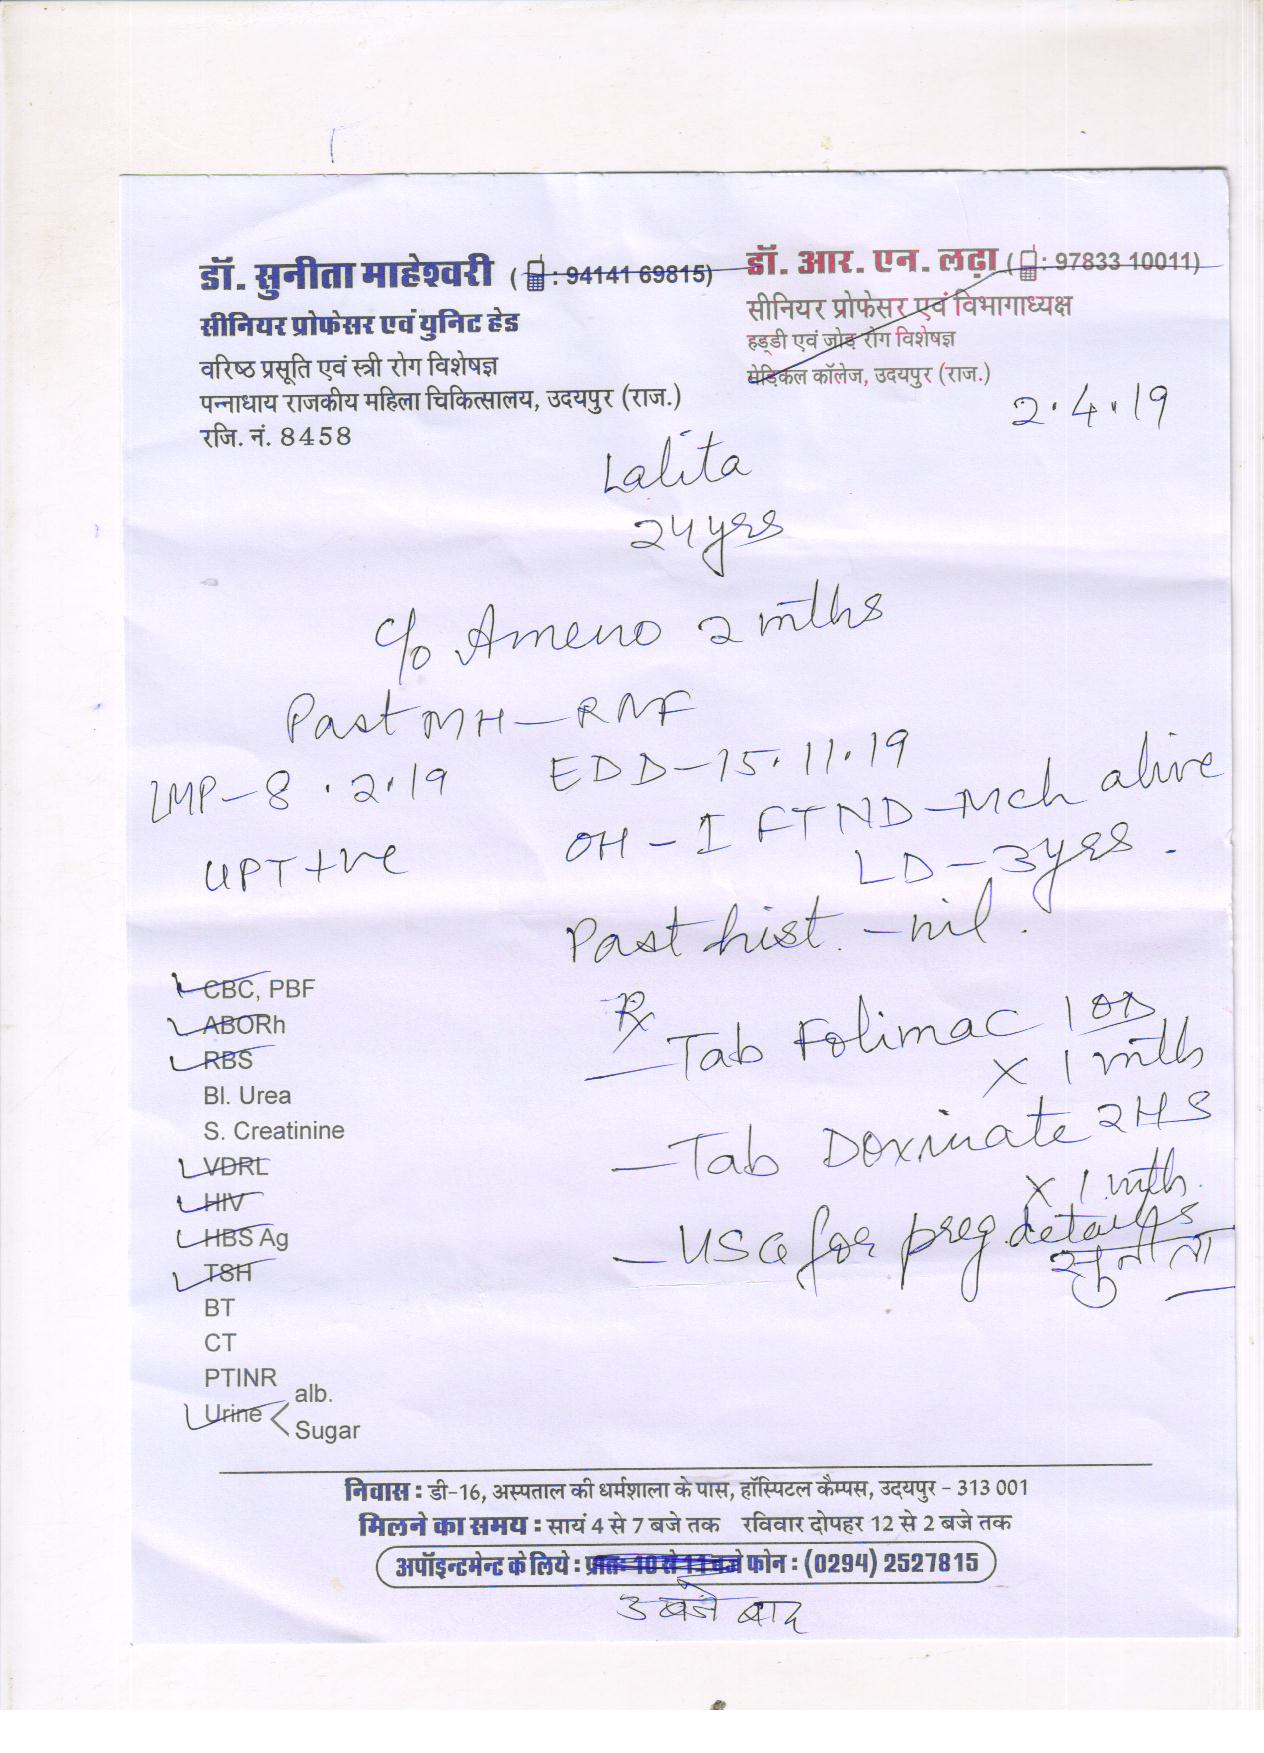 डॉ. सुनीता माहेश्वरी ( : 94141 69815)
सीनियर प्रोफेसर एवं युनिट हेड
वरिष्ठ प्रसूति एवं स्त्री रोग विशेषज्ञ
पन्नाधाय राजकीय महिला चिकित्सालय, उदयपुर (राज.)
रजि. नं. 8458
डॉ. आर. एन. लढ़ा ( : 97833 10011)
सीनियर प्रोफेसर एवं विभागाध्यक्ष
हड्डी एवं जोड़ रोग विशेषज्ञ
मेडिकल कॉलेज, उदयपुर (राज.)
2.4.19
Lalita
24 yrs
c/o Ameno 2 mths
Past MH - RNF
LMP - 8.2.19
EDD - 15.11.19
UPT +ve
OH - I FTND - Mch alive
LD - 3 yrs.
Past hist. - nil.
CBC, PBF
ABORh
RBS
Bl. Urea
S. Creatinine
VDRL
HIV
HBS Ag
TSH
BT
CT
PTINR
Urine < alb.
Sugar
Rx
- Tab Folimac 1 OD
x 1 mth
- Tab Doxinate 2 HS
x 1 mth.
- USG for preg. details
सुनीता
निवास : डी-16, अस्पताल की धर्मशाला के पास, हॉस्पिटल कैम्पस, उदयपुर - 313 001
मिलने का समय : सायं 4 से 7 बजे तक रविवार दोपहर 12 से 2 बजे तक
अपॉइन्टमेन्ट के लिये : प्रातः 10 से 11 बजे फोन : (0294) 2527815
3 बजे बाद